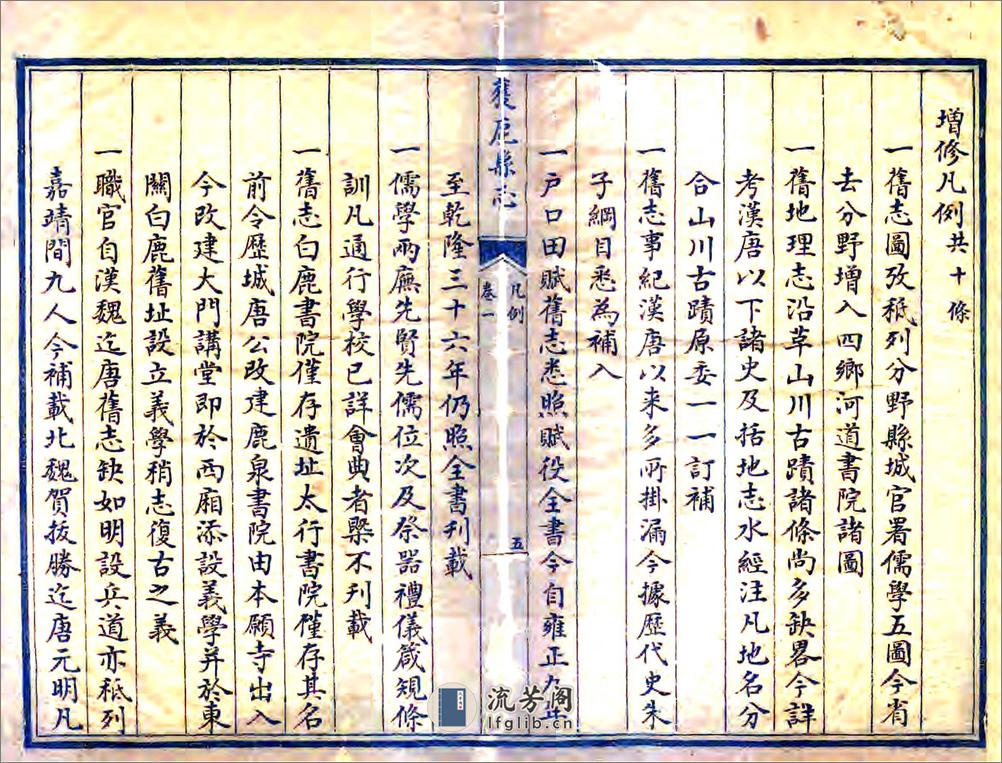 增修凡例共十條
一舊志圖攷秖列分野縣城官署儒學五圖今省
去分野增入四鄉河道書院諸圖
一舊地理志沿革山川古蹟諸條尚多缺畧今詳
考漢唐以下諸史及括地志水經注凡地名分
合山川古蹟原委一一訂補
一舊志事紀漢唐以来多所掛漏今據歷代史朱
子綱目悉為補入
一戶口田賦舊志悉照賦役全書今自雍正九年
獲鹿縣志
凡例
卷一
五
至乾隆三十六年仍照全書刊載
一儒學兩廡先賢先儒位次及祭器禮儀箴規條
訓凡通行學校已詳會典者槩不刊載
一舊志白鹿書院僅存遺址太行書院僅存其名
前令歷城唐公改建鹿泉書院由本願寺出入
今改建大門講堂即於西廂添設義學并於東
關白鹿舊址設立義學稍志復古之義
一職官自漢魏迄唐舊志缺如明設兵道亦秖列
嘉靖間九人今補載北魏賀拔勝迄唐元明凡
流芳阁
lfglib.cn